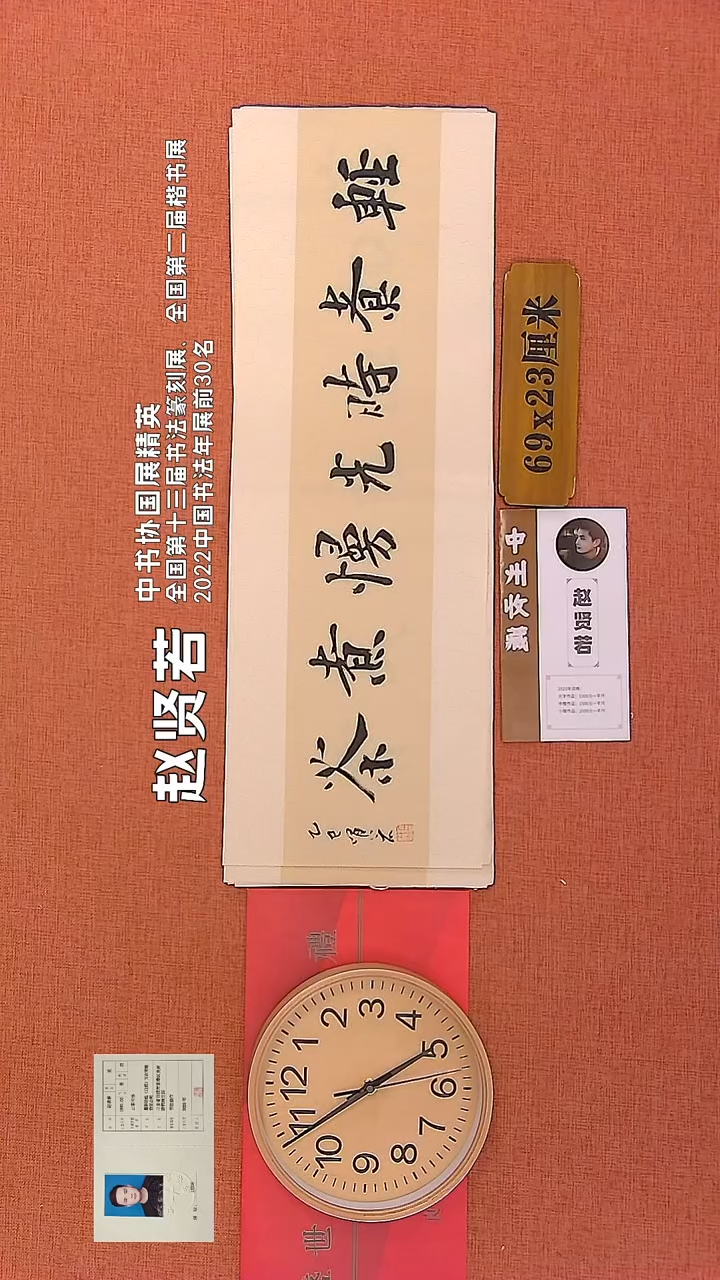 赵贤若
中书协国展精英
全国第十三届书法篆刻展、全国第二届楷书展
2022中国书法年展前30名
輕煮時光慢煮茶
乙巳賢若
69x23厘米
赵贤若
禮
世
12
1
2
3
4
5
6
7
8
9
10
11